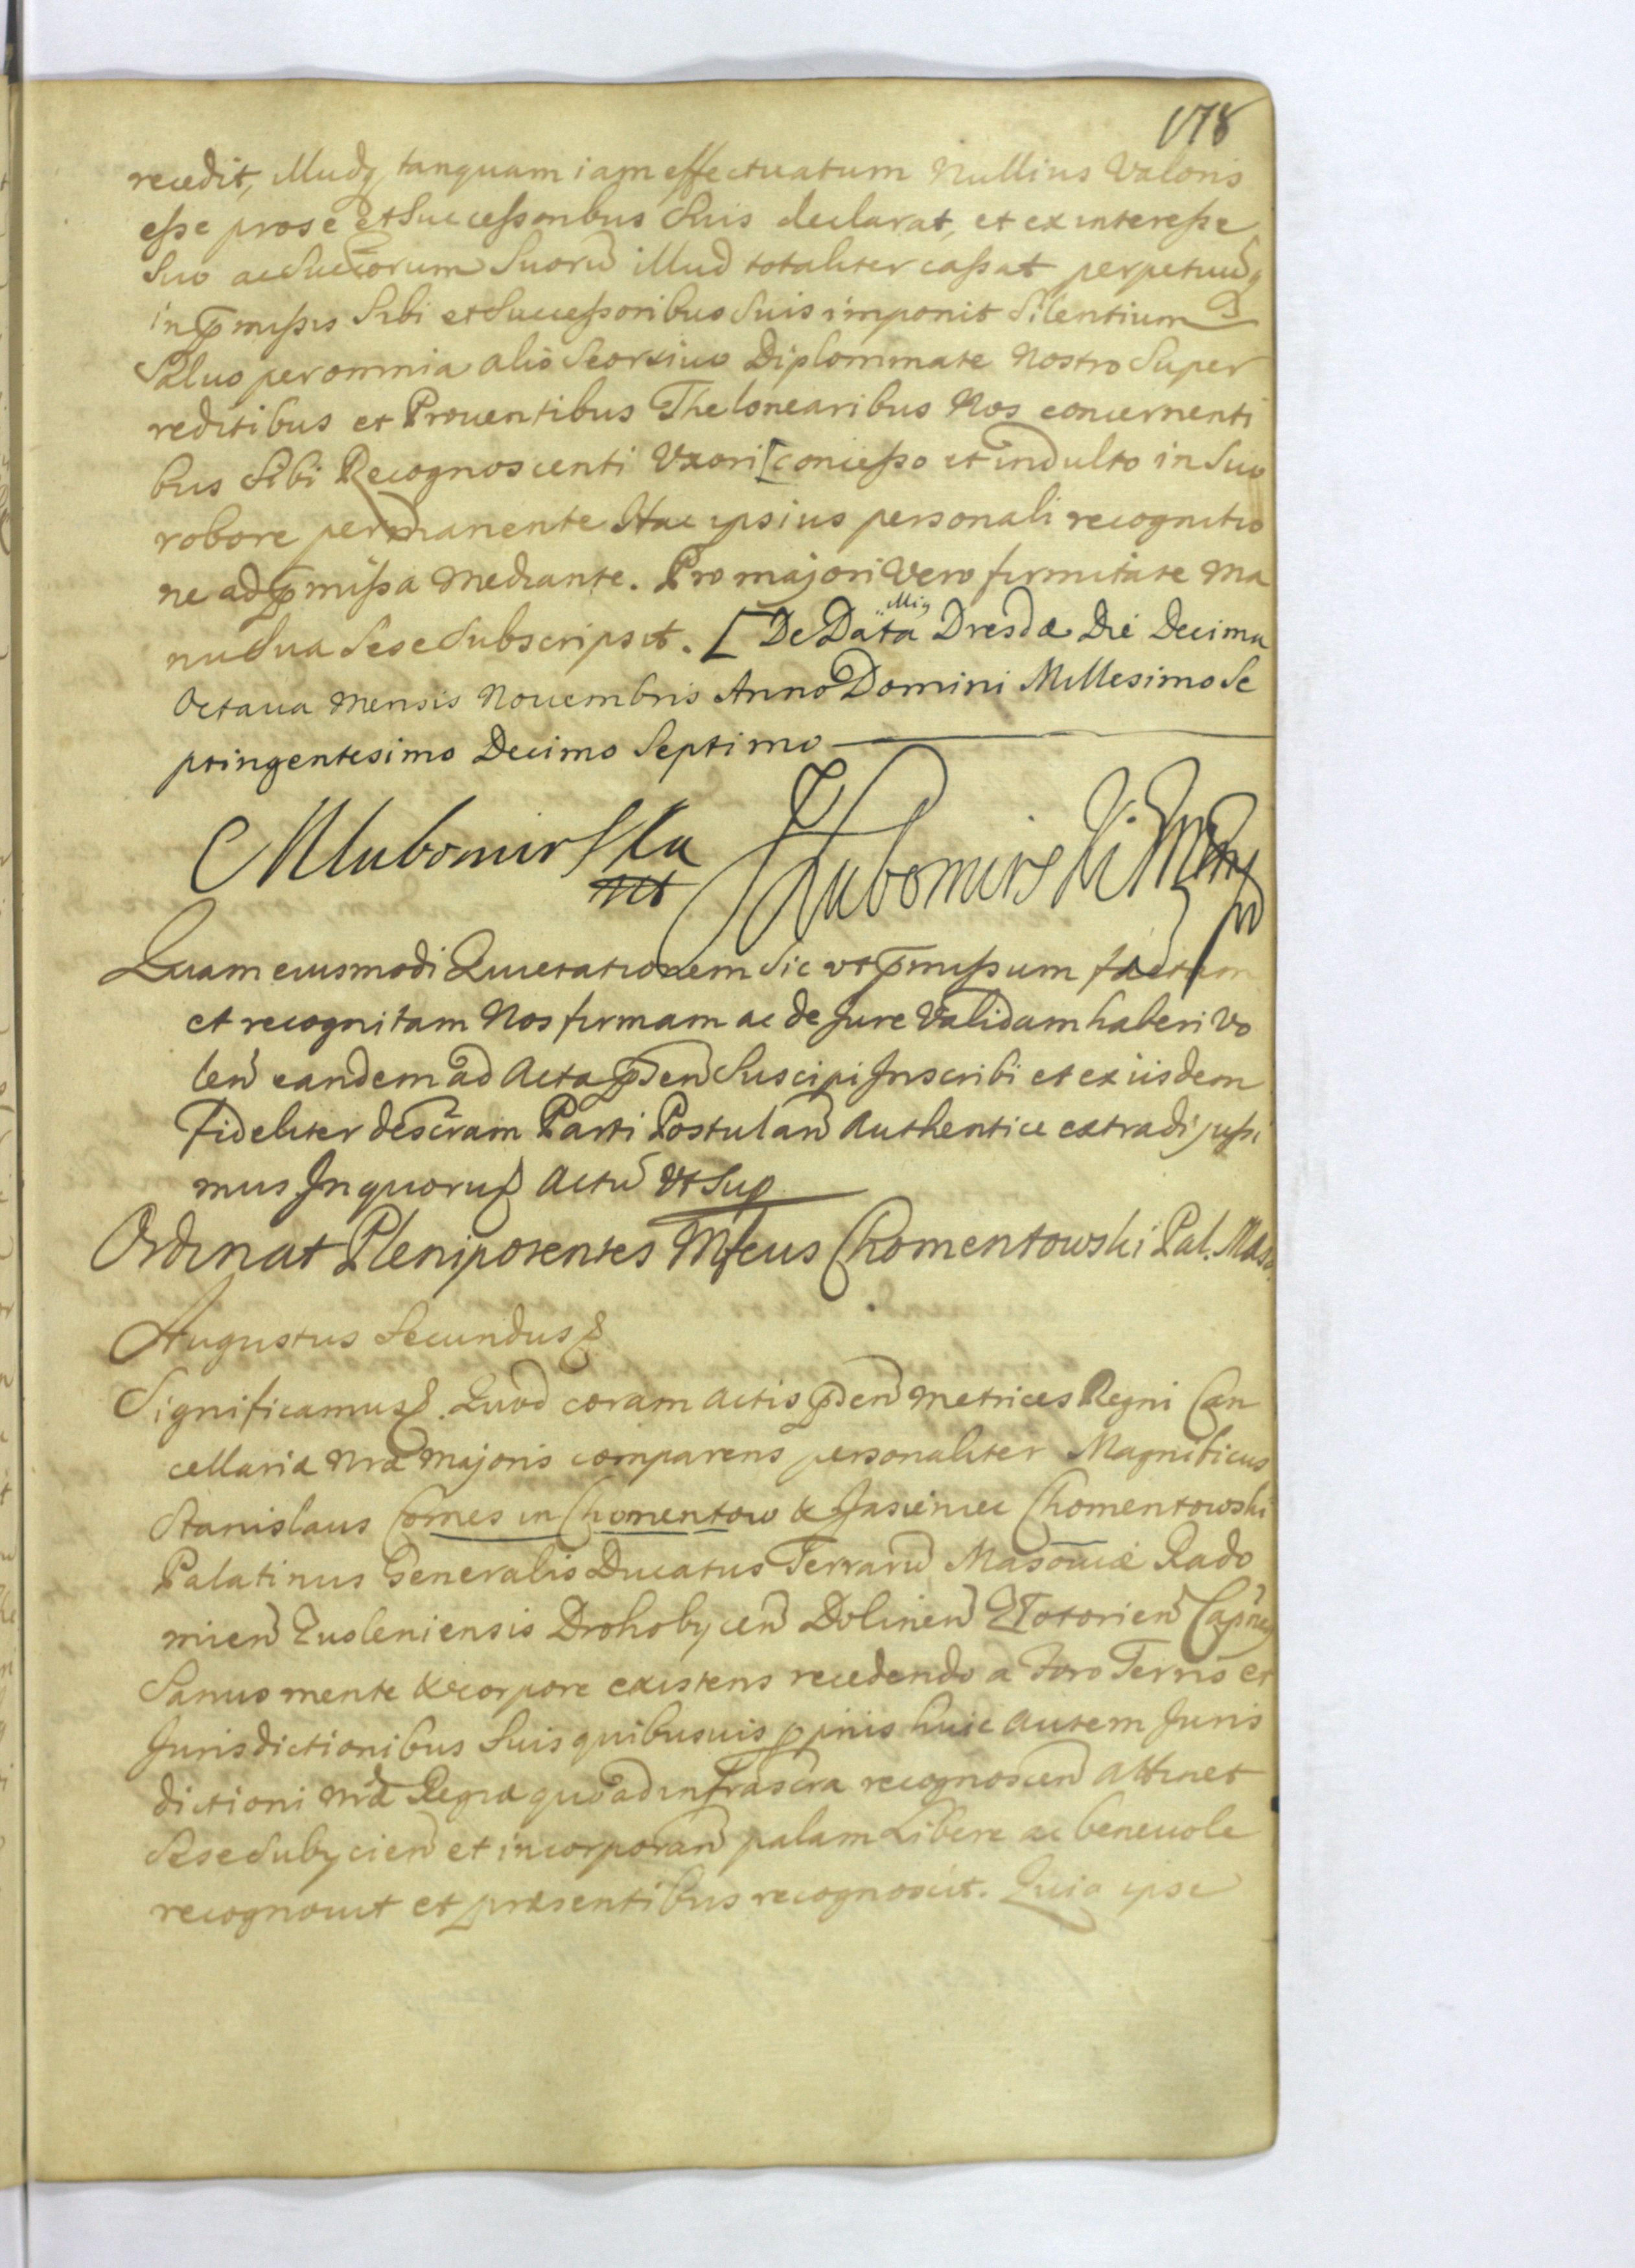 178
recedit, illudq tanquam iam effectuatum Nullius Valoris
esse pro se et Successoribus Suis declarat, et ex interesse
Suo ac Succorum Suorū illud totaliter cassat perpetuūq
in p̄missis Sibi et Successoribus Suis imponit Silentium
Saluo per omnia alio Seorsiuo Diplommate Nostro Super
reditibus et Prouentibus Thelonearibus Nos concernenti
bus Sibi Recognoscenti Uxori [concesso et indulto in Suo
robore permanente Hac ipsius personali recognitio
ne ad p̄missa mediante. Pro majori Vero firmitate Ma
nu Sua Sese Subscripsit. [De Data Dresdæ Die Decima
Octaua Mensis Nouembris Anno Domini Millesimo Se
ptingentesimo Decimo Septimo
MLubomirska
JLubomirski
Quam eiusmodi Quietationem Sic ut p̄missum factam
et recognitam Nos firmam ac de Jure Validam haberi vo
leñ eandem ad Acta p̄señ Suscipi Inscribi et ex iisdem
fideliter descr̄am Parti Postulañ Authentice extradi jussi
mus In quorum Actū ut Sup
Ordinat Plenipotentes Mfcus Chomentowski Pal. Maso.
Augustus Secundus
Significamus. Quod coram Actis p̄señ Metrices Regni Can
cellariæ Nræ Majoris comparens personaliter Magnificus
Stanislaus Comes in Chomentow & Jasieniec Chomentowski
Palatinus Generalis Ducatus Terrarū Masouiæ Rado
mieñ Zusleniensis Drohobyceñ Dolineñ Capñeus
Sanus mente & corpore existens recedendo a Foro Terris et
Jurisdictionibus Suis quibusuis p̄prijs huic autem Juris
dictioni Nræ Regiæ quoad infrascr̄a recognosceñ attinet
Sese Subijcieñ et incorporañ palam Libere ac beneuole
recognouit et præsentibus recognoscit. Quia ipse